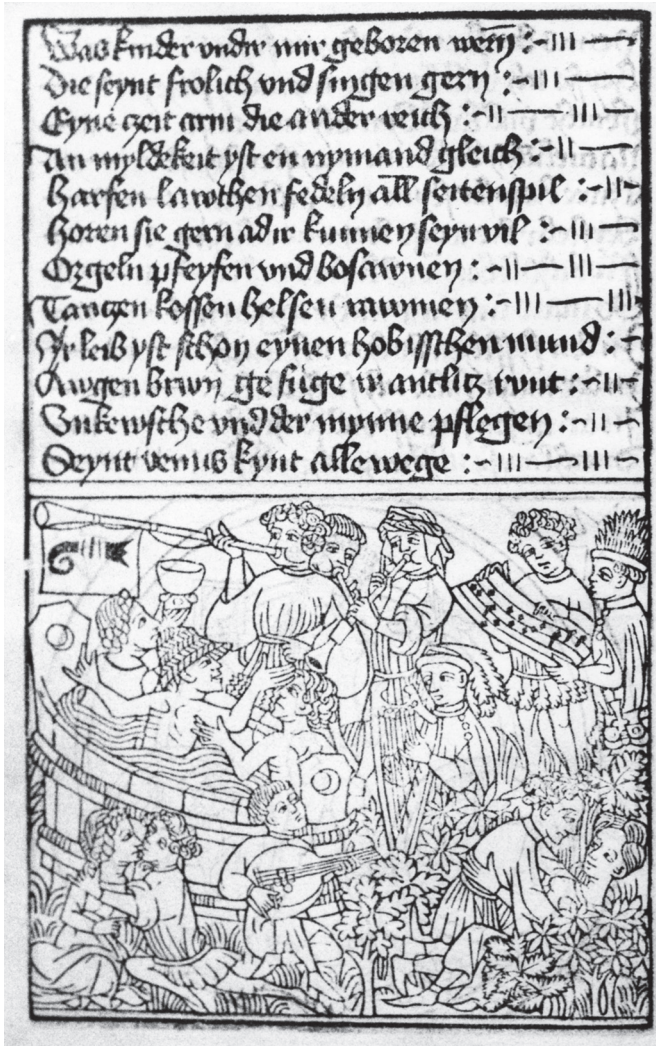 Was kinder vndir mir geboren werñ :~III —
Die seynt frolich vnd singen gern :~III —
Eyne czeit arm die ander reich :~II — III —
An myldekeit yst en nymand gleich :~II —
Harfen lawthen fedeln all seitenspil :~II~
horen sie gern adir kunnen seyn vil :~II —
Orgeln pfeyfen vnd bosawnen :~II — III —
Tantzen kossen helsen rawmen :~III — III
Ir leib yst schon eynen hobisschen mund :~
Awgen brwn gefuge w antlitz rwnt :~II —
Vnkewsche vnd der mynne pflegen :~II —
Seynt venus kynt alle wege :~III — III —